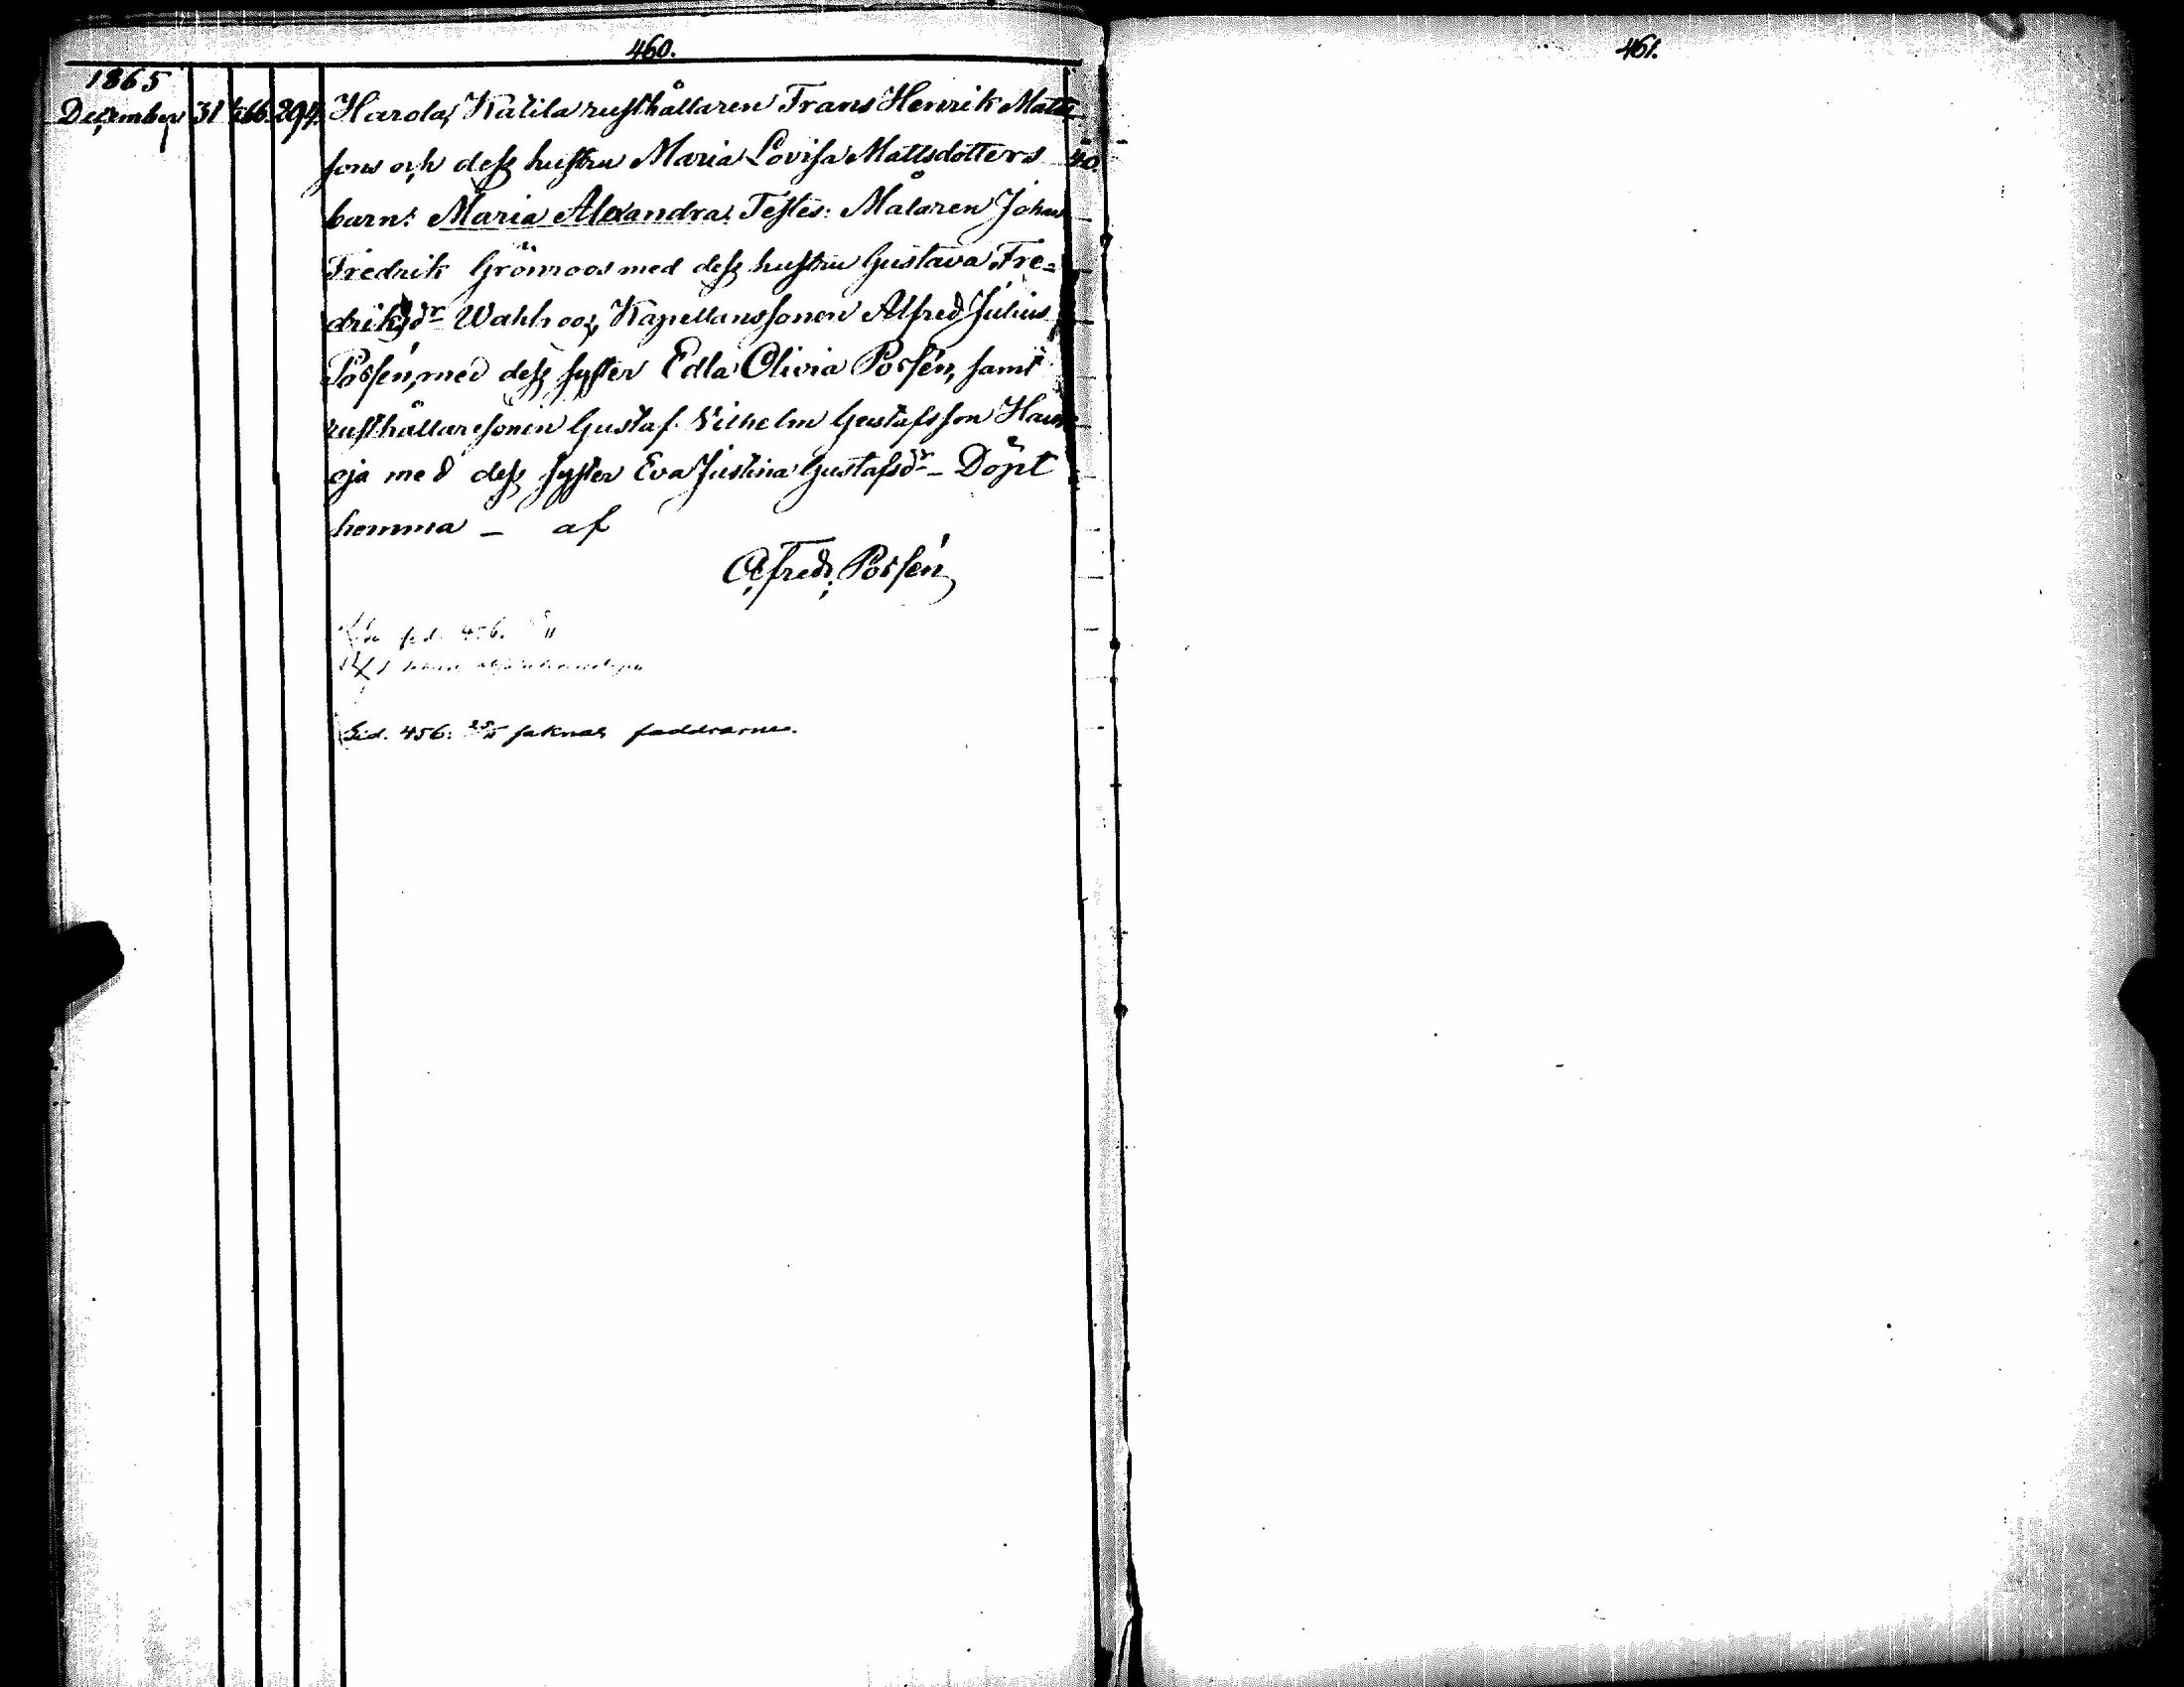 460.
1865
December 31 1/1 66. 294. Harola, Katila rusthållaren Frans Henrik Matts
sons och dess hustru Maria Lovisa Mattsdotters 40.
barn: Maria Alexandra. Testes: Målaren Johan
Fredrik Grönroos med dess hustru Gustava Fre=
driksdr Wahlroos, Kapellanssonen Alfred Julius
Possén, med dess syster Edla Olivia Possén, samt
rusthållaresonen Gustaf Vilhelm Gustafsson
oja med dess syster Eva Justina Gustafsdr – Döpt
hemma – af
Alfred Possén
sid. 456.
Sid. 456: saknas faddrarne.
461.